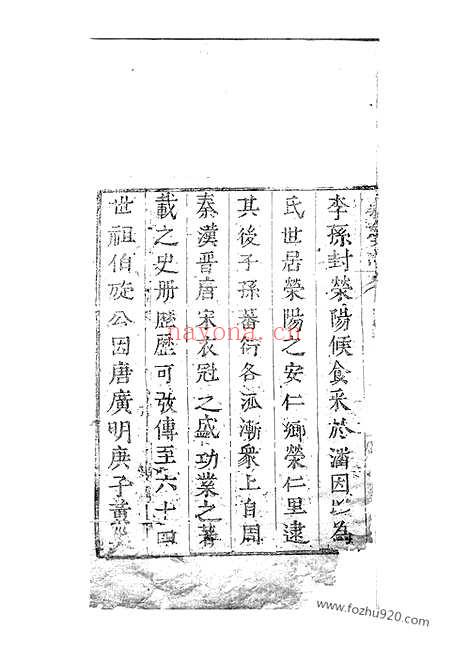 季孫封滎陽候食采於潘因以為
氏世居榮陽之安仁鄉榮仁里逮
其後子孫蕃衍各派漸衆上自周
秦漢晉唐宋衣冠之盛功業之著
載之史册歷歷可攷傳至六十四
世祖伯旋公因唐廣明庚子黄
nayona.cn
www.fozhu920.com